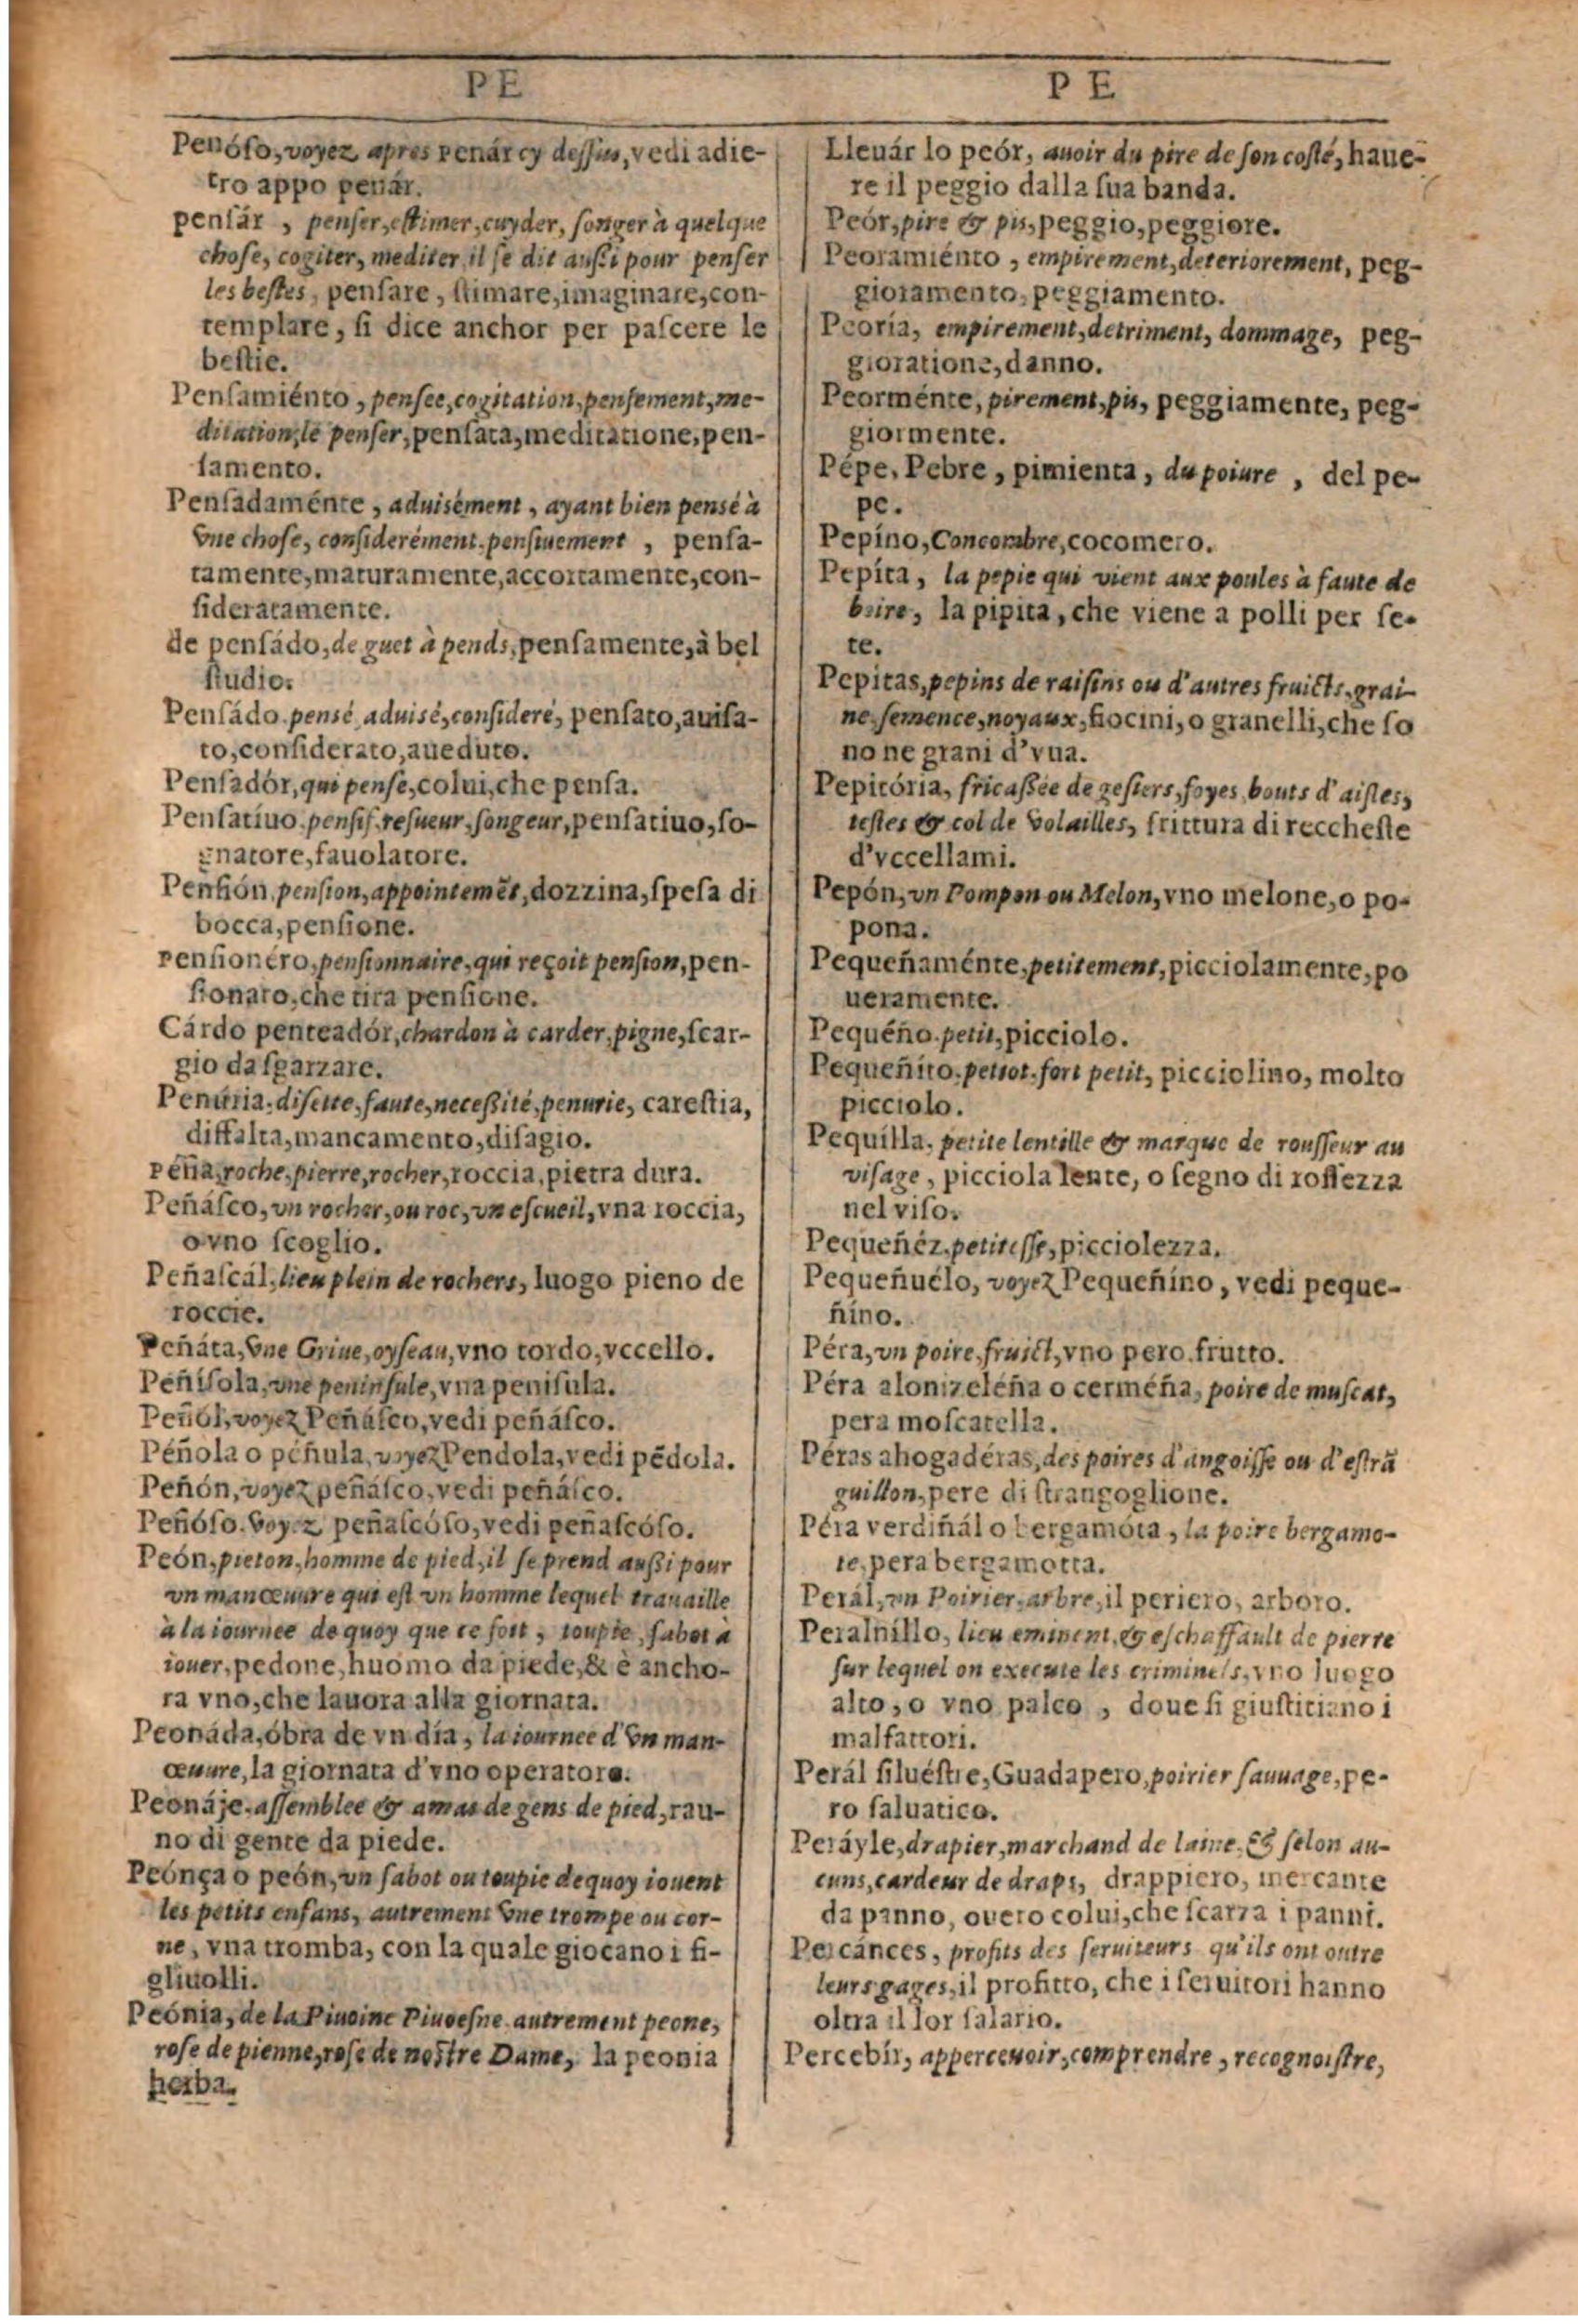 PE
Penóſo, voyez apres penár cy deſſus, vedi adie-
tro appo penár.
penſár , penſer, eſtimer, cuyder, ſonger à quelque
choſe, cogiter, mediter il ſe dit auſsi pour penſer
les beſtes, penſare, ſtimare, imaginare, con-
templare, ſi dice anchor per paſcere le
beſtie.
Penſamiénto, penſee, cogitation, penſement, me-
ditation, le penſer, penſata, meditatione, pen-
ſamento.
Penſadaménte, aduisément, ayant bien pensé à
vne choſe, conſiderément, penſiuement , penſa-
tamente, maturamente, accortamente, con-
ſideratamente.
de penſádo, de guet à pends, penſamente, à bel
ſtudio.
Penſádo. pensé aduisé, conſideré, penſato, auiſa-
to, conſiderato, aueduto.
Penſadór, qui penſe, colui, che penſa.
Penſatíuo. penſif, reſueur, ſongeur, penſatiuo, ſo-
gnatore, fauolatore.
Penſión, penſion, appointemēt, dozzina, ſpeſa di
bocca, penſione.
penſionéro, penſionnaire, qui reçoit penſion, pen-
ſionato, che tira penſione.
Cárdo penteadór, chardon à carder, pigne, ſcar-
gio da ſgarzare.
Penúria, diſette, faute, neceſsité, penurie, careſtia,
diffalta, mancamento, diſagio.
péña, roche, pierre, rocher, roccia, pietra dura.
Peñáſco, vn rocher, ou roc, vn eſcueil, vna roccia,
o vno ſcoglio.
Peñaſcál, lieu plein de rochers, luogo pieno de
roccie.
Peñáta, vne Griue, oyſeau, vno tordo, vccello.
Peñíſola, vne peninſule, vna peniſula.
Peñól, voyez Peñáſco, vedi peñáſco.
Péñola o péñula, voyez Pendola, vedi pēdola.
Peñón, voyez peñáſco, vedi peñáſco.
Peñóſo. voyez peñaſcóſo, vedi peñaſcóſo.
Peón, pieton, homme de pied, il ſe prend auſsi pour
vn manœuure qui eſt vn homme lequel trauaille
à la iournee de quoy que ce ſoit , toupie, ſabot à
iouer, pedone, huomo da piede, & è ancho-
ra vno, che lauora alla giornata.
Peonáda, óbra de vn día, la iournee d'vn man-
œuure, la giornata d'vno operatore.
Peonáje. aſſemblee & amas de gens de pied, rau-
no di gente da piede.
Peónça o peón, vn ſabot ou toupie dequoy iouent
les petits enfans, autrement vne trompe ou cor-
ne, vna tromba, con la quale giocano i fi-
gliuolli.
Peónia, de la Piuoine Piuoeſne. autrement peone,
roſe de pienne, roſe de noſtre Dame, la peonia
herba.
PE
Lleuár lo peór, auoir du pire de ſon coſté, haue-
re il peggio dalla ſua banda.
Peór, pire & pis, peggio, peggiore.
Peoramiénto, empirement, deteriorement, peg-
gioramento, peggiamento.
Peoría, empirement, detriment, dommage, peg-
gioratione, danno.
Peorménte, pirement, pis, peggiamente, peg-
giormente.
Pépe, Pebre, pimienta, du poiure , del pe-
pe.
Pepíno, Concombre, cocomero.
Pepíta, la pepie qui vient aux poules à faute de
boire, la pipita, che viene a polli per ſe-
te.
Pepitas, pepins de raiſins ou d'autres fruicts, grai-
ne, ſemence, noyaux, fiocini, o granelli, che ſo
no ne grani d'vua.
Pepitória, fricaſsée de geſiers, foyes, bouts d'aiſles,
teſtes & col de volailles, frittura di reccheſte
d'vccellami.
Pepón, vn Pompon ou Melon, vno melone, o po-
pona.
Pequeñaménte, petitement, picciolamente, po
ueramente.
Pequéño. petit, picciolo.
Pequeñíto, petiot, fort petit, picciolino, molto
picciolo.
Pequílla, petite lentille & marque de rouſſeur au
viſage, picciola lente, o ſegno di roſſezza
nel viſo.
Pequeñéz, petiteſſe, picciolezza.
Pequeñuélo, voyez Pequeñíno, vedi peque-
ñíno.
Péra, vn poire, fruict, vno pero, frutto.
Péra alonizeléña o cerméña, poire de muſcat,
pera moſcatella.
Péras ahogadéras, des poires d'angoiſſe ou d'eſtrā
guillon, pere di ſtrangoglione.
Péra verdiñál o bergamóta, la poire bergamo-
te, pera bergamotta.
Perál, vn Poirier, arbre, il periero, arboro.
Peralníllo, lieu eminent, & eſchaffault de pierre
ſur lequel on execute les criminels, vno luogo
alto, o vno palco , doue ſi giuſtitiano i
malfattori.
Perál ſiluéſtre, Guadapero, poirier ſauuage, pe-
ro ſaluatico.
Peráyle, drapier, marchand de laine, & ſelon au-
cuns, cardeur de draps, drappiero, mercante
da panno, ouero colui, che ſcarza i panni.
Percánces, profits des ſeruiteurs qu'ils ont outre
leurs gages, il profitto, che i ſeruitori hanno
oltra il lor ſalario.
Percebír, apperceuoir, comprendre, recognoiſtre,